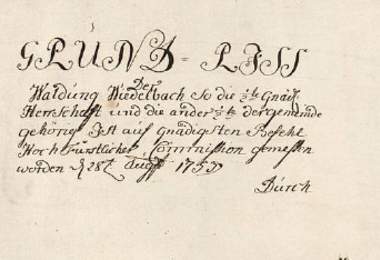 GRUND = RISS
Der
Waldung Wiedelbach so die ½te Gnäd:
Herrschaft und die ander ½te der gemeinde
gehörig Ist auf gnädigsten Befehl
Hoch Fürstlicher Commission gemessen
worden d 28t Augst 1753
Dürch